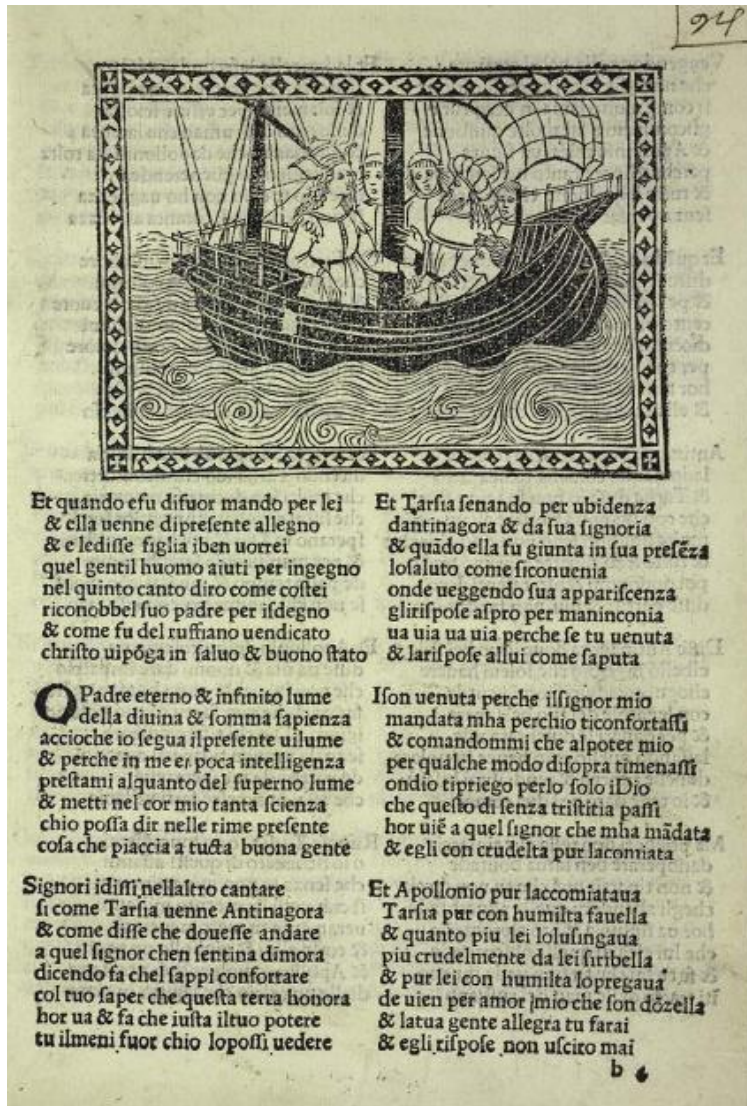 94
Et quando eſu difuor mando per lei
& ella uenne dipreſente allegno
& e lediſſe figlia iben uorrei
quel gentil huomo aiuti per ingegno
nel quinto canto diro come coſtei
riconobbel ſuo padre per iſdegno
& come fu del ruffiano uendicato
chriſto uipōga in ſaluo & buono ſtato
O Padre eterno & infinito lume
della diuina & ſomma ſapienza
accioche io ſegua ilpreſente uilume
& perche in me er poca intelligenza
preſtami alquanto del ſuperno lume
& metti nel cor mio tanta ſcienza
chio poſſa dir nelle rime preſente
coſa che piaccia a tucta buona gente
Signori idiſſi nellaltro cantare
ſi come Tarſia uenne Antinagora
& come diſſe che doueſſe andare
a quel ſignor chen ſentina dimora
dicendo fa chel ſappi confortare
col tuo ſaper che queſta terra honora
hor ua & fa che iuſta iltuo potere
tu ilmeni fuor chio lopoſſi uedere
Et Tarſia ſenando per ubidenza
dantinagora & da ſua ſignoria
& quādo ella fu giunta in ſua preſēza
loſaluto come ſiconuenia
onde ueggendo ſua appariſcenza
gliriſpoſe aſpro per maninconia
ua uia ua uia perche ſe tu uenuta
& lariſpoſe allui come ſaputa
Iſon uenuta perche ilſignor mio
mandata mha perchio ticonfortaſſi
& comandommi che alpoter mio
per qualche modo diſopra timenaſſi
ondio tipriego perlo ſolo iDio
che queſto di ſenza triſtitia paſſi
hor uiē a quel ſignor che mha mādata
& egli con crudelta pur lacomiata
Et Apollonio pur laccomiataua
Tarſia pur con humilta fauella
& quanto piu lei loluſingaua
piu crudelmente da lei ſiribella
& pur lei con humilta lopregaua
de uien per amor mio che ſon dōzella
& latua gente allegra tu farai
& egli riſpoſe non uſciro mai
b